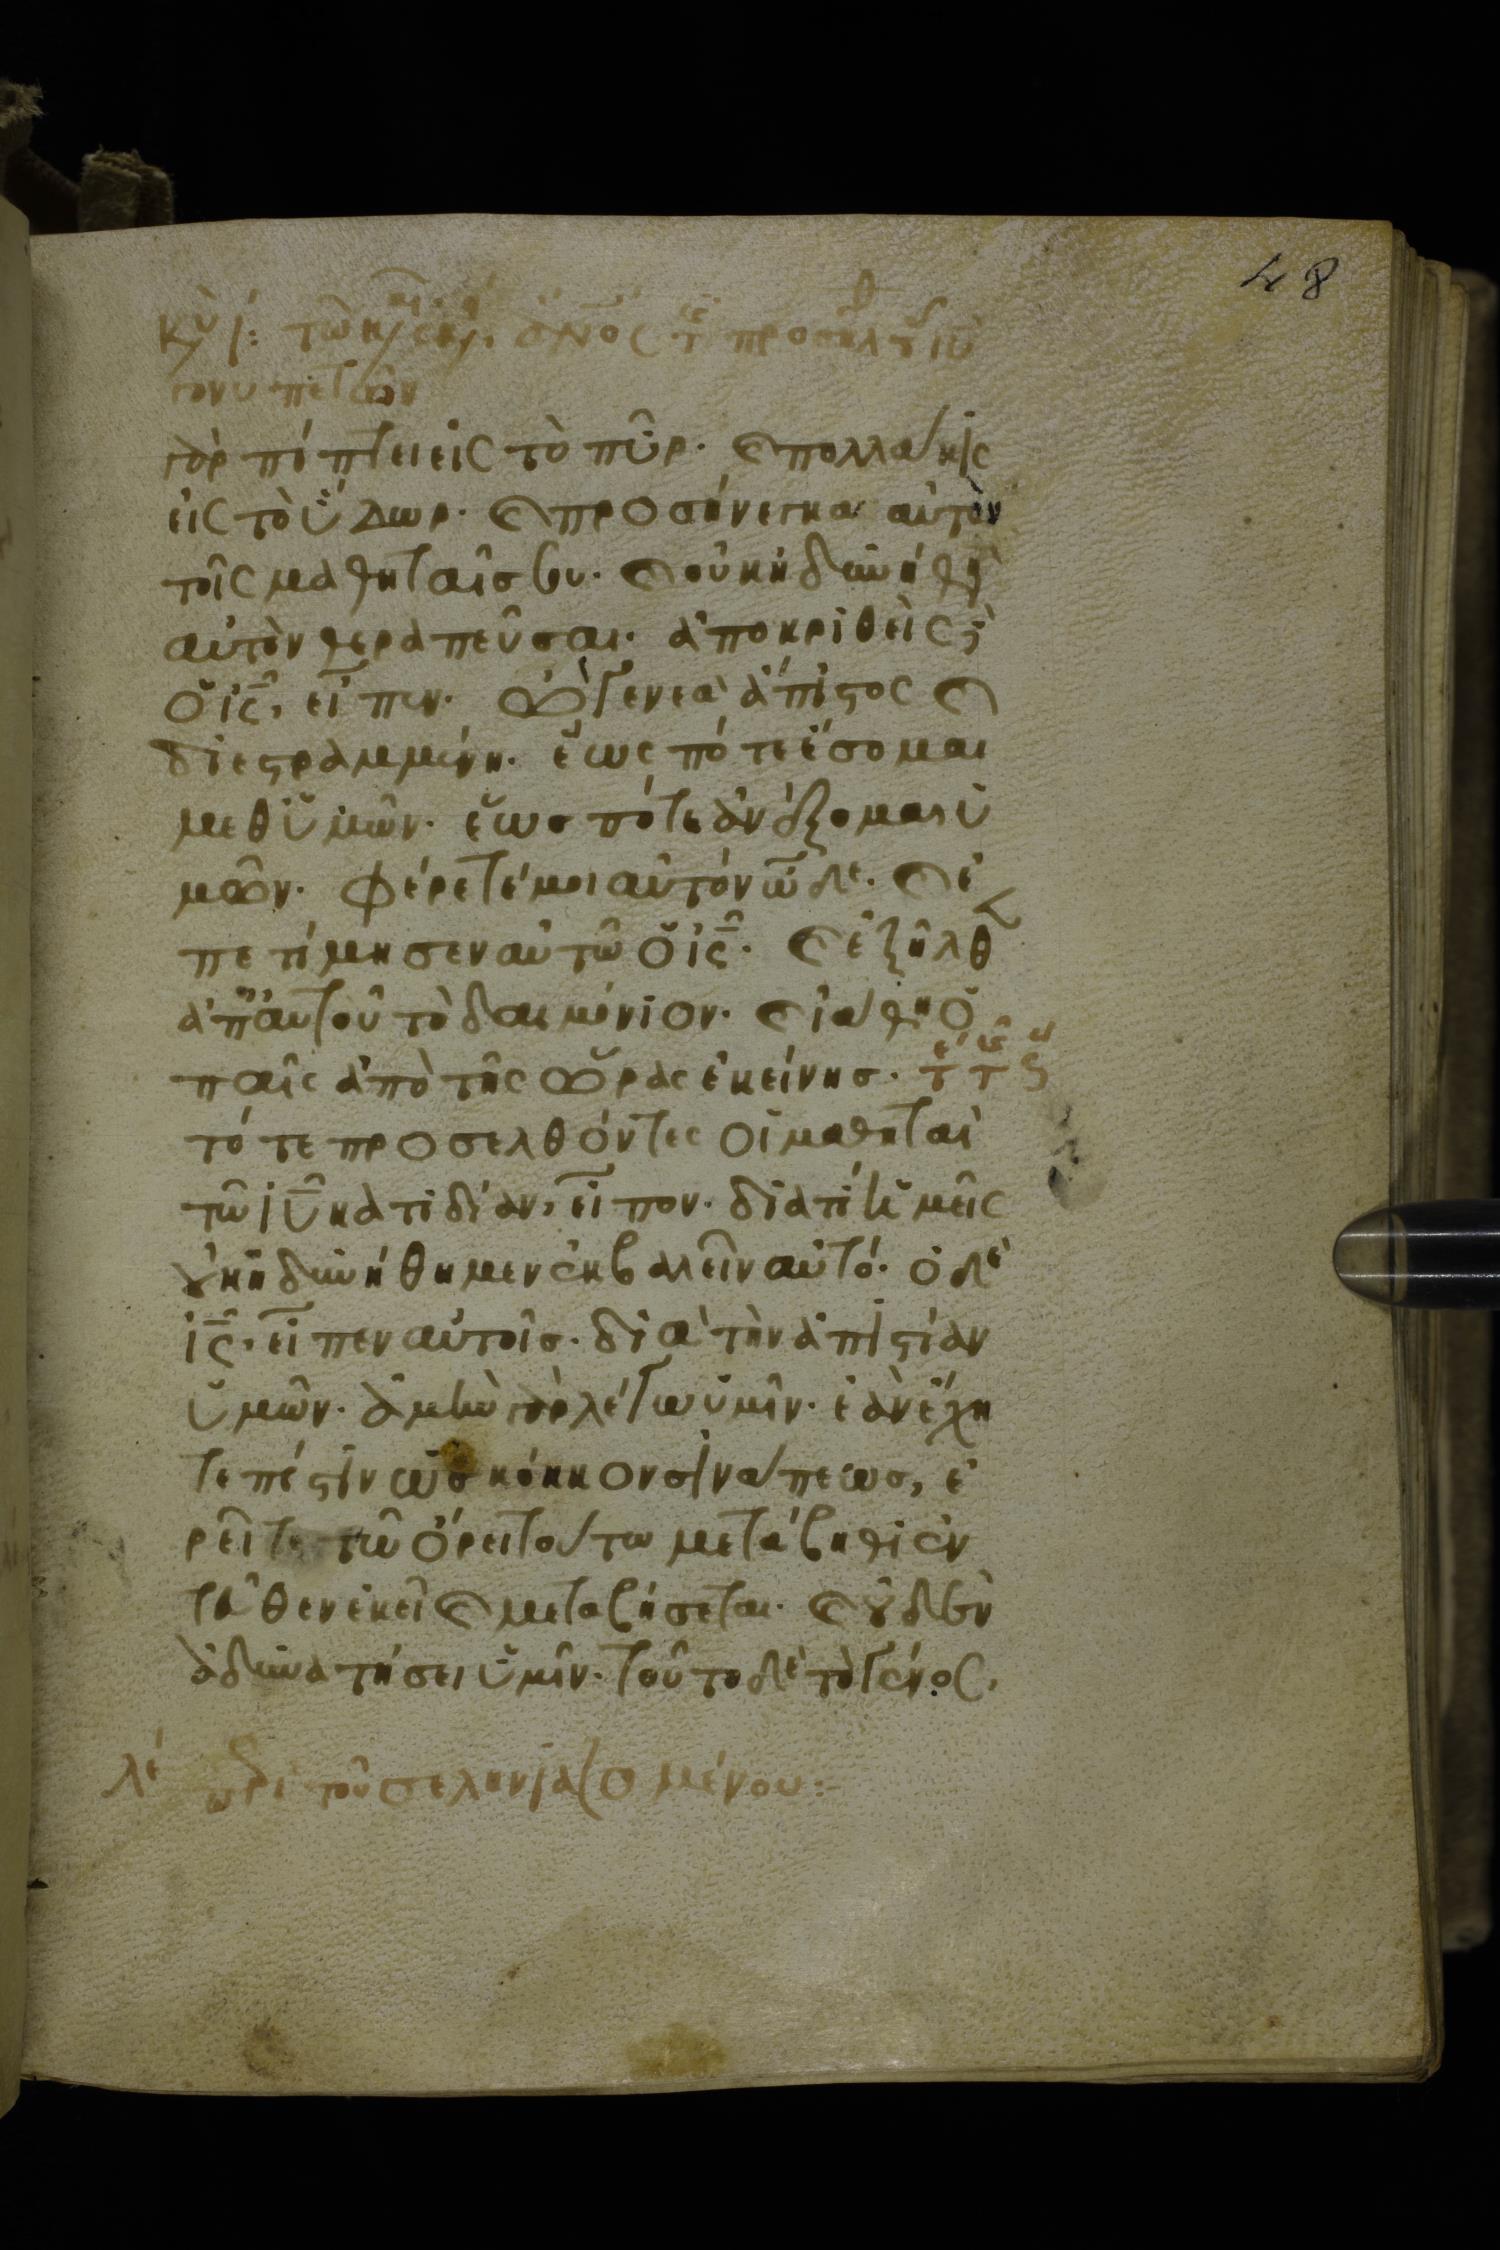 48
γὰρ πίπτει εἰς τὸ πῦρ. καὶ πολλάκις
εἰς τὸ ὕδωρ. καὶ προσήνεγκα αὐτὸν
τοῖς μαθηταῖσ σου. καὶ οὐκ ἠδυνήθη
αὐτὸν θεραπεῦσαι. ἀποκριθεὶς δὲ
ὁ ἰς, εἶπεν. ὦ γενεὰ ἄπιστος καὶ
διεστραμμένη. ἕως πότε ἔσομαι
μεθ ὑμῶν. ἕωσ πότε ἀνέξομαι ὑ
μῶν. φέρετέ μοι αὐτὸν ὧδε. καὶ ἐ
πετίμησεν αὐτῶ ὁ ἰς. καὶ ἐξῆλθ
ἀπ αὐτοῦ τὸ δαιμόνιον. καὶ ἰάθη ὁ
παῖς ἀπὸ τῆς ὥρας ἐκείνησ.
τότε προσελθόντες οἱ μαθηταὶ
τῶ ιῦ κατιδίαν, εἶπον. διατί ἡμεῖς
οὐκ ἠδυνήθημεν ἐκβαλεῖν αὐτό. ὁ δὲ
ἰς, εἶπεν αὐτοῖσ. διὰ τὴν ἀπιστίαν
ὑμῶν. ἀμὴν γὰρ λέγω ὑμῖν. ἐὰν ἔχη
τε πίστιν ὡσ κόκκον σινάπεωσ, ἐ
ρεῖτε τῶ ὄρει τούτω μετάβηθι ἐν
τεῦθεν ἐκεῖ καὶ μεταβήσεται. καὶ οὐδὲν
ἀδυνατήσει ὑμῖν. τοῦτο δὲ τὸ γένος,
λε περὶ τοῦ σεληνιαζομένου: